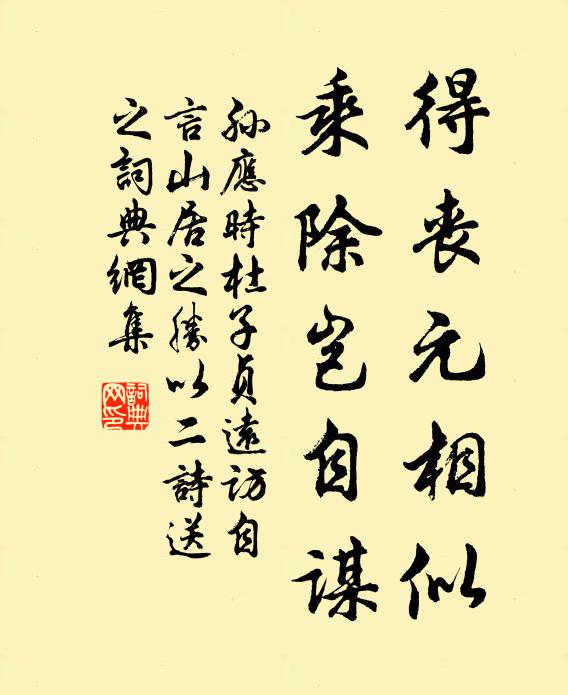 得喪元相似
乘除豈自謀
孫應時杜子貞遠訪自
言山居之勝以二詩送
之詞典網集
詞典網印